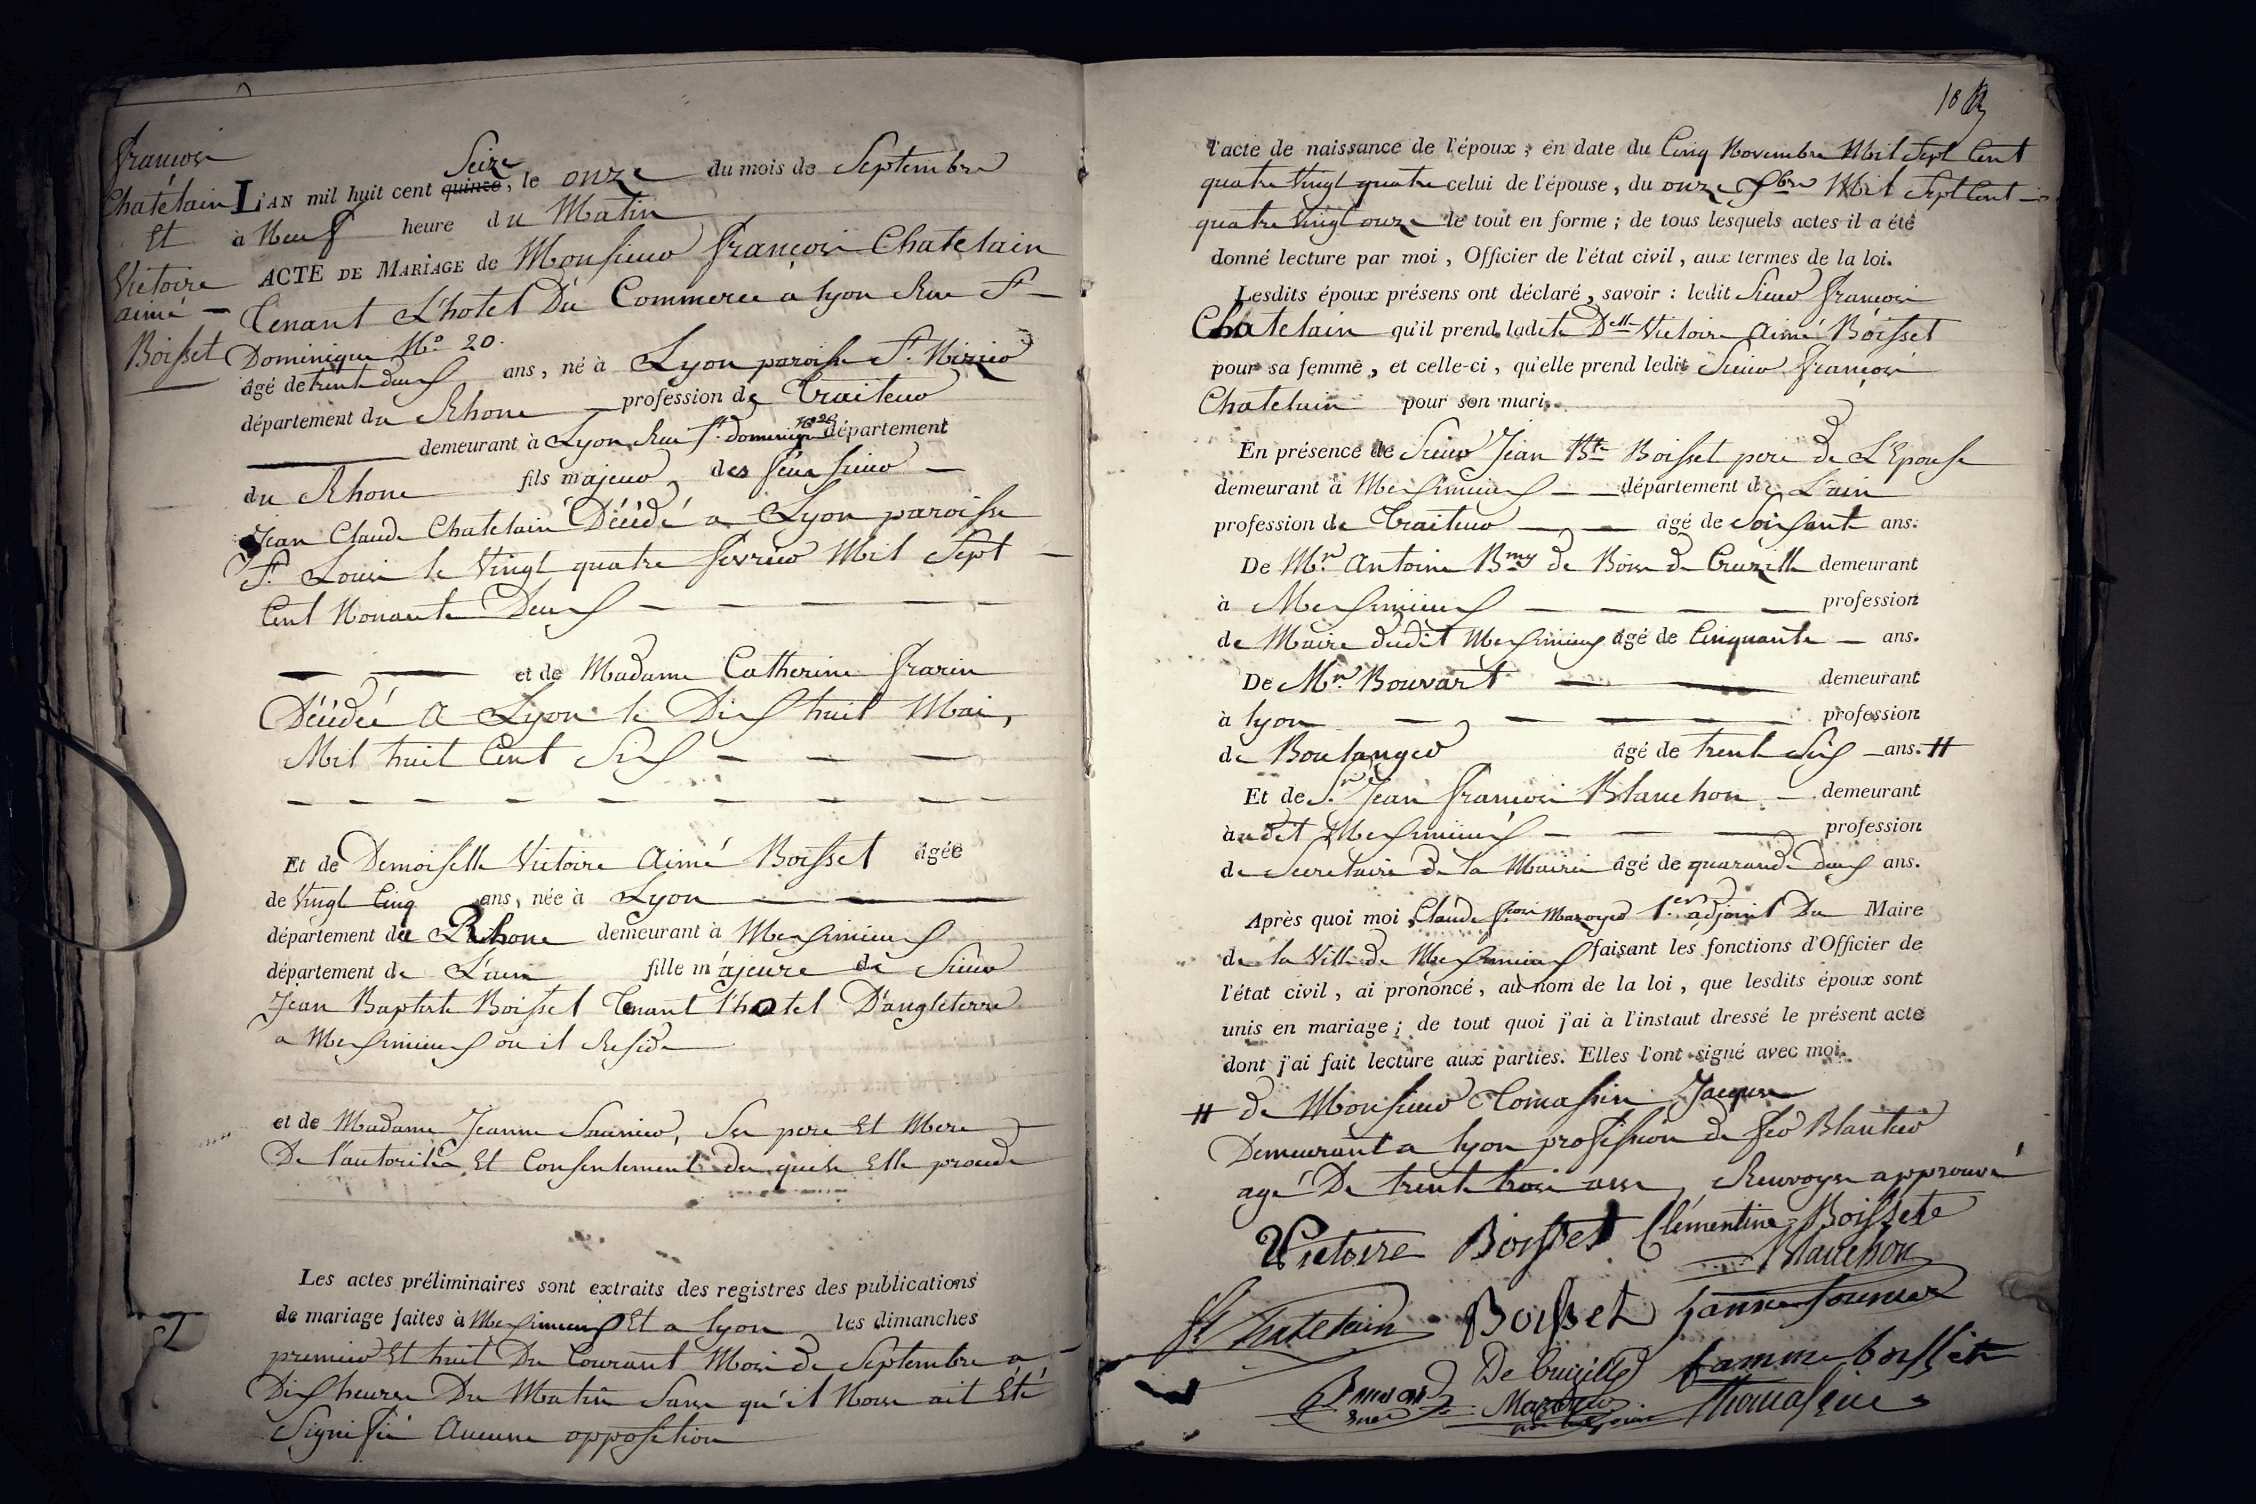 françois
Chatelain
Et
Victoire
aimé
Boisset
Seize
L'AN mil huit cent quinze, le onze du mois de Septembre
à Neuf heure du Matin
ACTE DE MARIAGE de Monsieur françois Chatelain
Tenant L'hotel Du Commerce a lyon Rue St
Dominique No 20.
âgé de trente deux ans, né à Lyon paroisse St Nizier
département du Rhone profession de Traiteur
demeurant à Lyon Rue St dominique No 20 département
du Rhone fils majeur des feux sieur
Jean Claude Chatelain Décédé a Lyon paroisse
St Louis le Vingt quatre fevrier Mil Sept
Cent Nonante Deux
et de Madame Catherine frarin
Décédée A Lyon le Dix huit Mai,
Mil huit Cent Six
Et de Demoiselle Victoire Aimé Boisset âgée
de Vingt Cinq ans, née à Lyon
département du Rhone demeurant à Meximieux
département de L'ain fille majeure de Sieur
Jean Baptiste Boisset Tenant l'hotel D'angleterre
a Meximieux ou il Reside
et de Madame Jeanne Saunier, Ses pere Et Mere
De l'autorité Et Consentement des quels Elle procede
Les actes préliminaires sont extraits des registres des publications
de mariage faites à Meximieux Et a lyon les dimanches
premier Et huit Du Courant Mois de Septembre a
Dix heures Du Matin Sans qu'il Nous ait Eté
Signifié Aucune opposition
l'acte de naissance de l'époux, en date du Cinq Novembre Mil Sept Cent
quatre Vingt quatre celui de l'épouse, du onze 9bre Mil Sept Cent
quatre Vingt onze le tout en forme ; de tous lesquels actes il a été
donné lecture par moi, Officier de l'état civil, aux termes de la loi.
Lesdits époux présens ont déclaré, savoir : ledit Sieur françois
Chatelain qu'il prend ladete Delle Victoire Aimé Boisset
pour sa femme, et celle-ci, qu'elle prend ledit Sieur françois
Chatelain pour son mari.
En présence de Sieur Jean Bte Boisset pere de L'Epouse
demeurant à Meximieux département de L'ain
profession de Traiteur âgé de Soixante ans.
De Mr. Antoine Bmy de Boisse de Cruzille demeurant
à Meximieux profession
de Maire dudit Meximieux âgé de Cinquante ans.
De Mr. Bouvart demeurant
à lyon profession
de Boulanger âgé de trente Six ans. #
Et de Sr. Jean françois Blanchon demeurant
audit Meximieux profession
de Secretaire de la Mairie âgé de quarande deux ans.
Après quoi moi, Claude fcois 1er. adjoint Du Maire
de la Ville de Meximieux faisant les fonctions d'Officier de
l'état civil, ai prononcé, au nom de la loi, que lesdits époux sont
unis en mariage ; de tout quoi j'ai à l'instaut dressé le présent acte
dont j'ai fait lecture aux parties. Elles l'ont signé avec moi.
# de Monsieur Tomassin Jacques
Demeurant a lyon profession de fer Blantier
agé De trente trois ans, Renvoye approuvé
Victoire Boisset Clémentine Boissete
Blanchon
fs Chatelain Boisset janne sounier
De Cruzille famme boisset
Thomassin